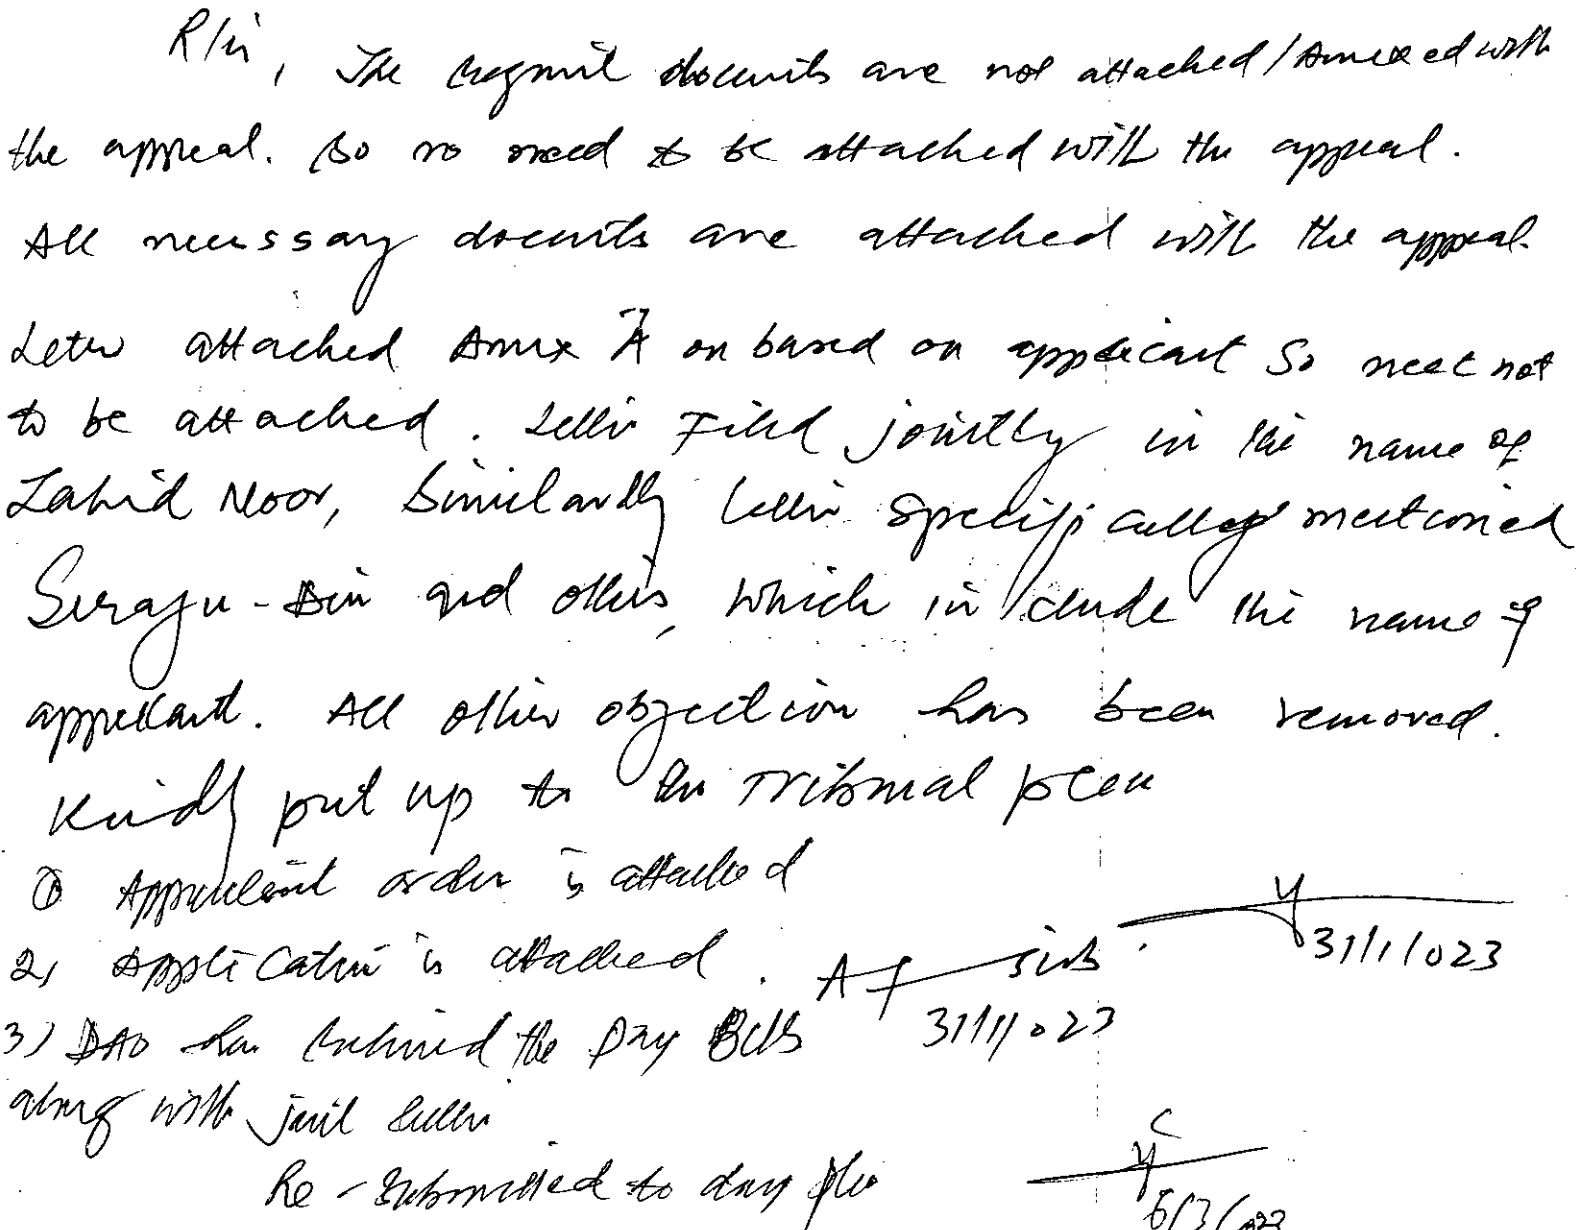 R/Sir, The document are not attached/Annexed with
the appeal. So no need to be attached with the appeal.
All necessary documents are attached with the appeal.
Letter attached Annex "A" on based on applicant So need not
to be attached. Letter Filed jointly in the name of
Zahid Noor, Similarly letter specifically mentioned
Seraju-Din and others, which in/clude the name of
appellant. All other objection has been removed.
Kindly put up to the Tribunal please
① Appointment order is attached
2, Application is attached.
31/1/023
3) DAO has returned the Pay Bills
31/1/023
along with joint letter
Re-Submitted to day plz
6/3/023